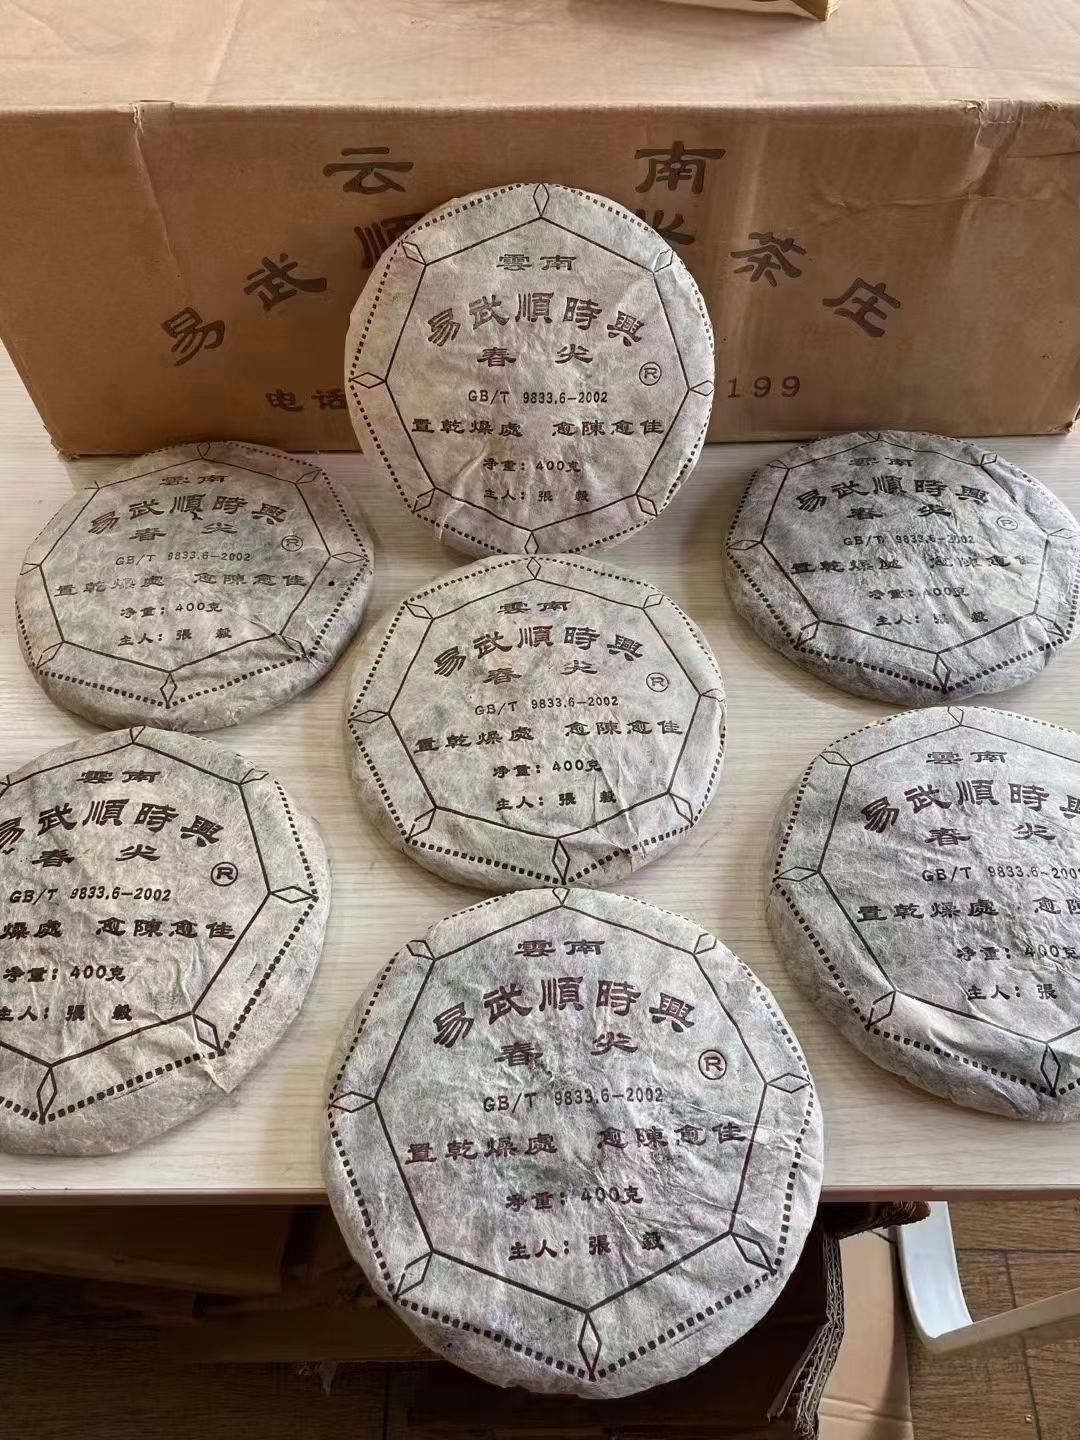 云南
易武顺 茶庄
电话 199
雲南
易武順時興
春尖
®
GB/T 9833.6-2002
置乾燥處 愈陳愈佳
净重：400克
主人：張 毅
雲南
易武順時興
春尖
®
GB/T 9833.6-2002
置乾燥處 愈陳愈佳
净重：400克
主人：張 毅
雲南
易武順時興
春尖
®
GB/T 9833.6-2002
置乾燥處 愈陳愈佳
净重：400克
主人：張 毅
雲南
易武順時興
春尖
®
GB/T 9833.6-2002
置乾燥處 愈陳愈佳
净重：400克
主人：張 毅
雲南
易武順時興
春尖
®
GB/T 9833.6-2002
燥處 愈陳愈佳
净重：400克
主人：張 毅
雲南
易武順時
春尖
GB/T 9833.6-200
置乾燥處 愈
净重：400克
主人：張
雲南
易武順時興
春尖
®
GB/T 9833.6-2002
置乾燥處 愈陳愈佳
净重：400克
主人：張 毅